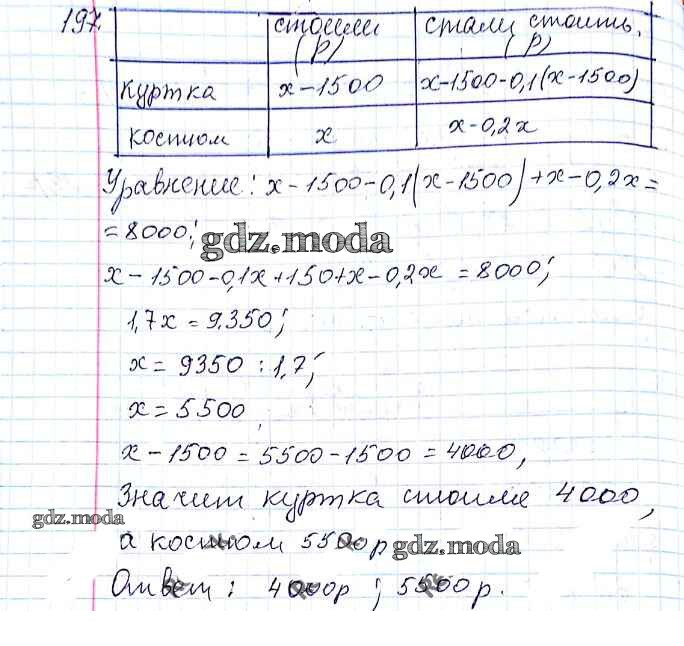 197. стоили стали стоить.
(р) (р)
куртка x-1500 x-1500-0,1(x-1500)
костюм x x-0,2x
Уравнение: x-1500-0,1(x-1500)+x-0,2x=
=8000;
gdz.moda
x-1500-0,1x+150+x-0,2x=8000;
1,7x=9.350;
x=9350:1,7;
x=5500
x-1500=5500-1500=4000,
Значит куртка стоила 4000,
gdz.moda
а костюм 5500р
gdz.moda
Ответ: 4000р; 5500р.